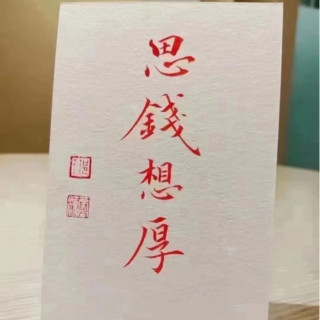 思錢想厚